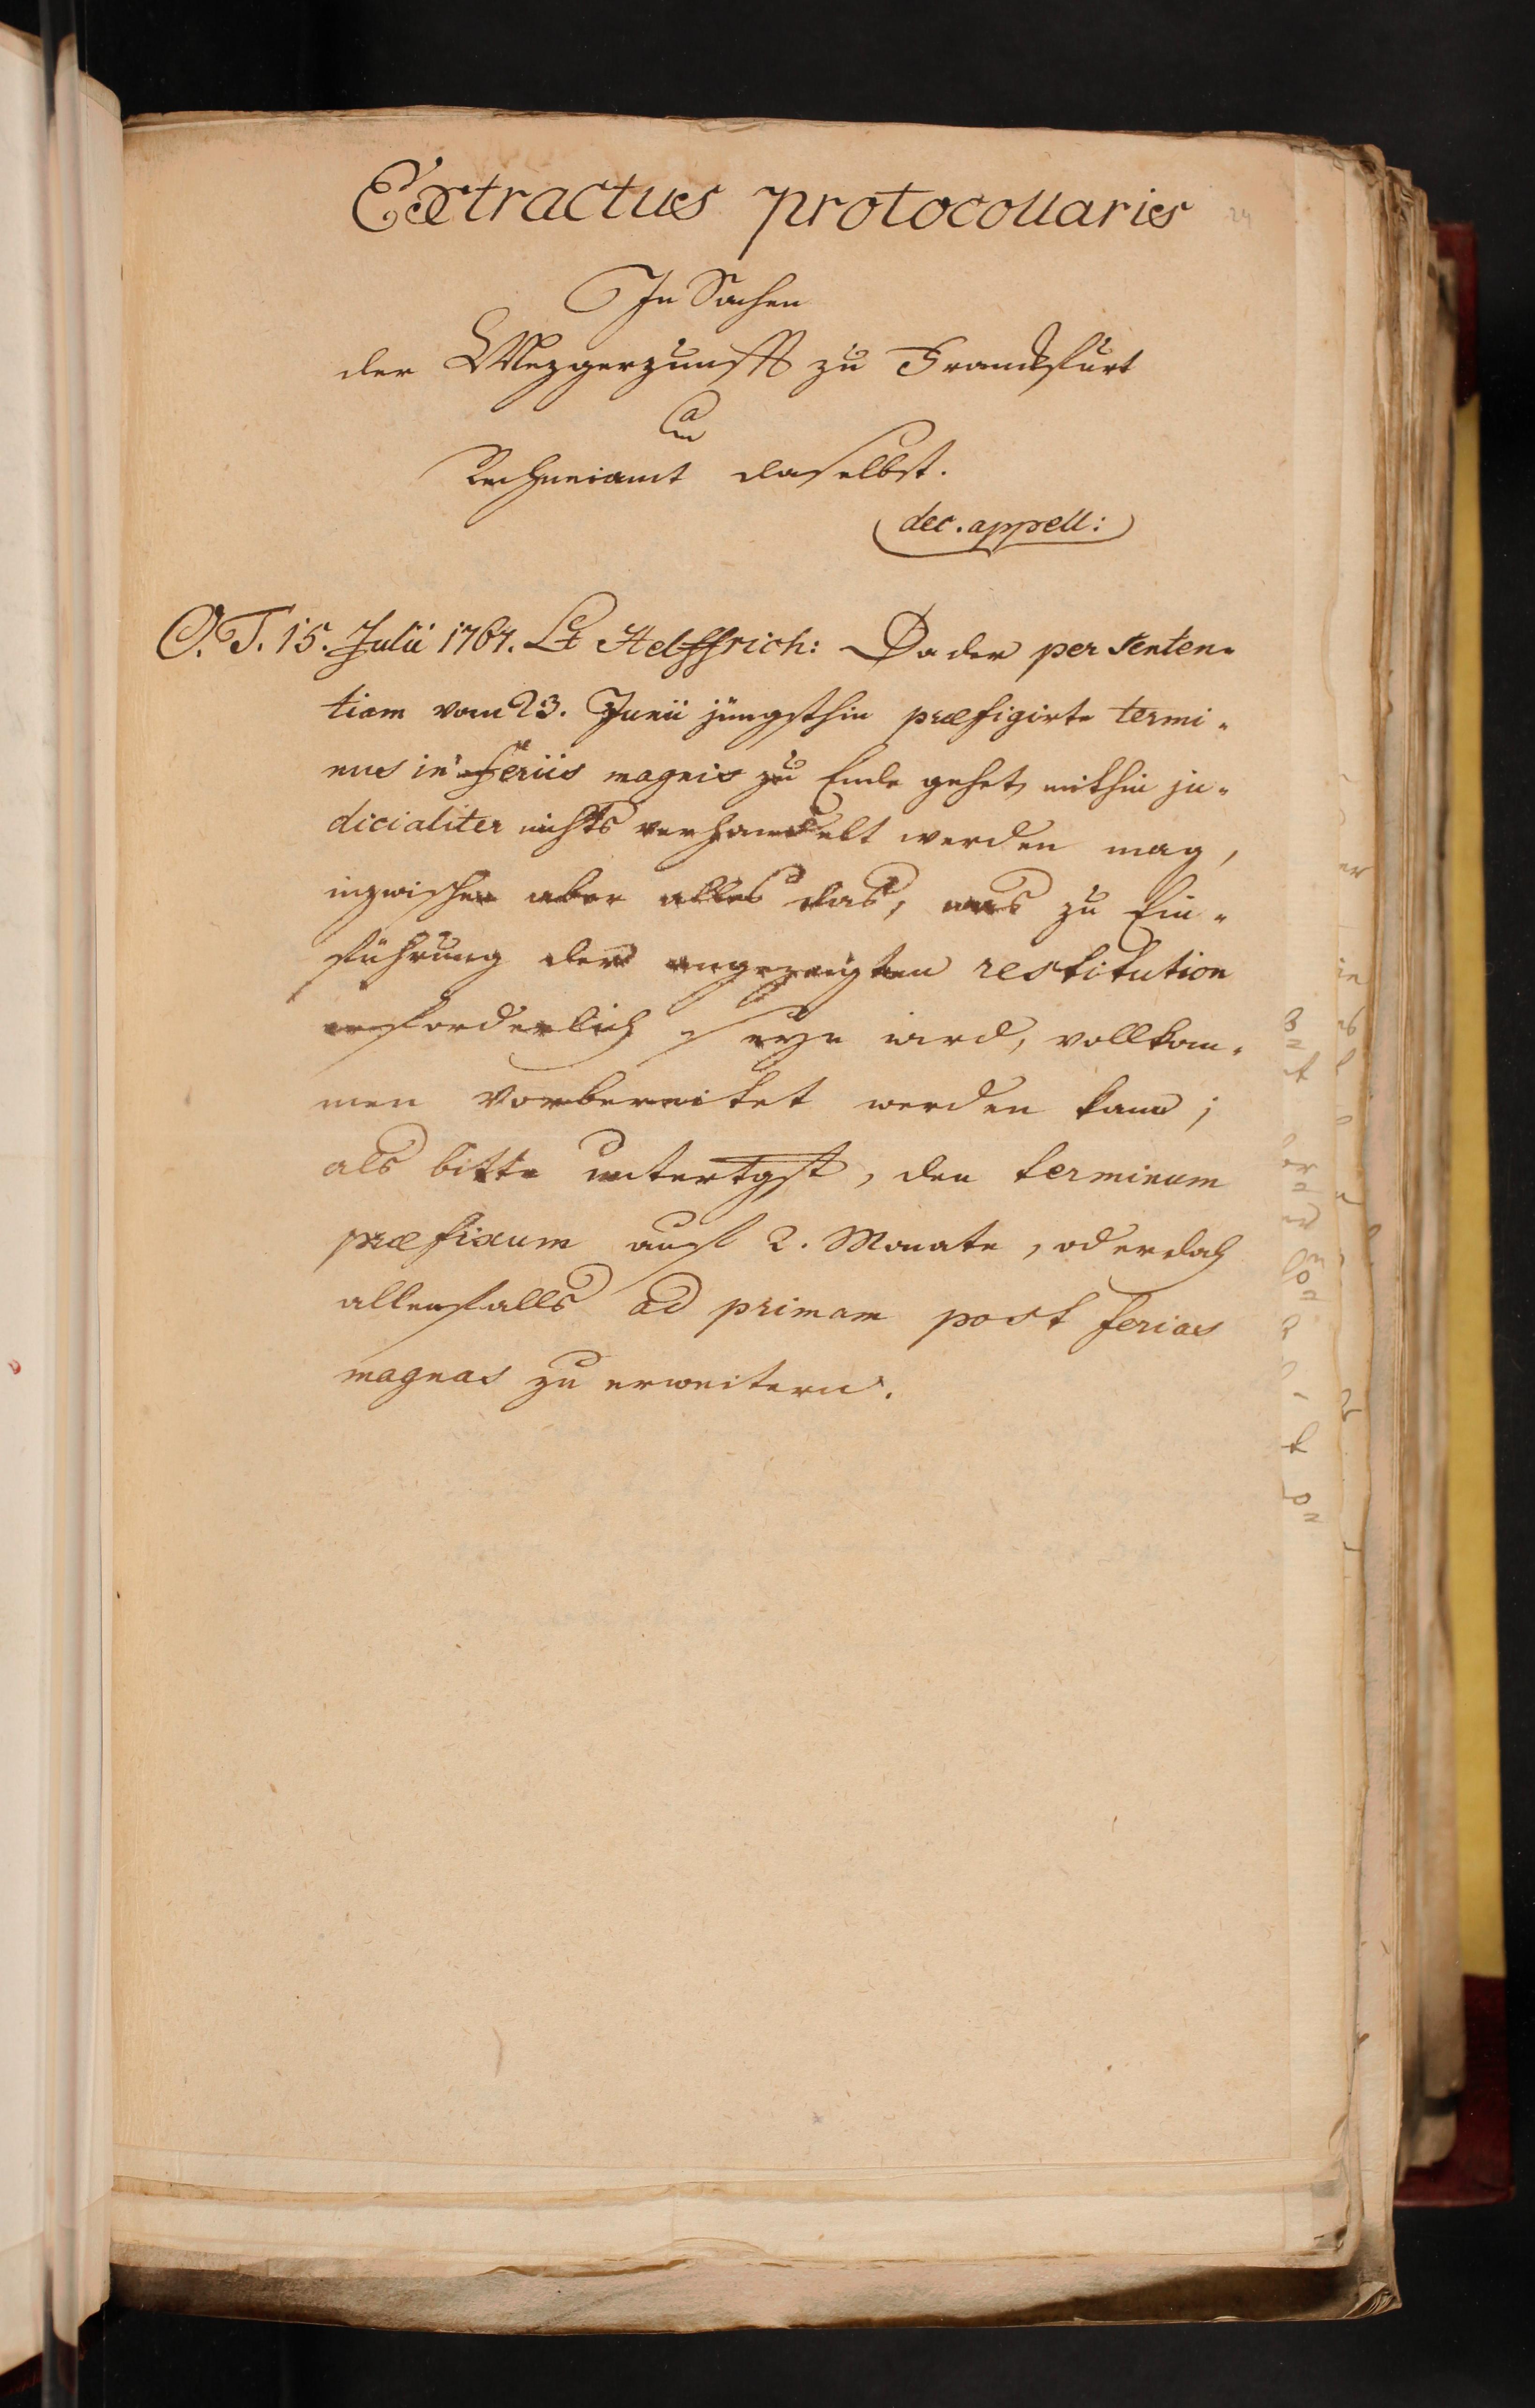 Extractus protocollaris
24
In Sachen
der Mezgerzunfft zu Franckfurt
Ca
Rechneiamt daselbst.
(dec. appell:)
O.T. 15. Julii 1767. Lt Helffrich: Da der per senten=
tiam vom 23. Junii jüngsthin præfigirte termi=
nus in feriis magnis zu Ende gehet, mithin ju=
dicialiter nichts verhandelt werden mag,
inzwischen aber alles das, was zu Ein=
führung der angezeigten restitution
erforderlich seyn wird, vollkom=
men vorbereitet werden kann;
als bitte untertgst, den terminum
præfixum auf 2. Monate, oder doch
allenfalls ad primam post ferias
magnas zu erweitern.